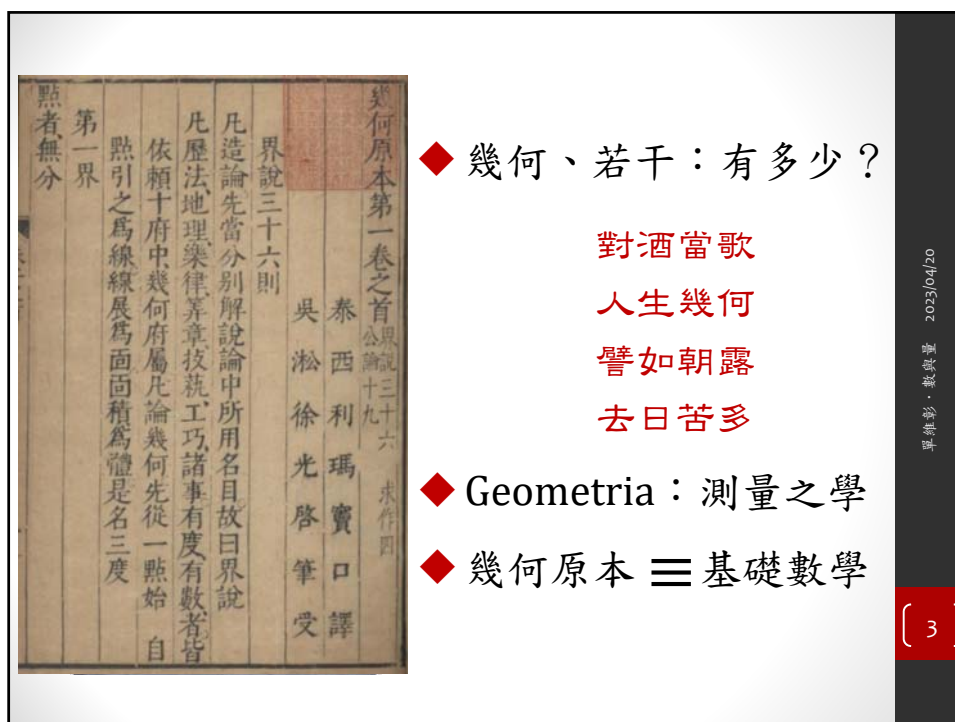 幾何原本第一卷之首
界說三十六
公論十九
求作四
泰西利瑪竇口譯
吳淞徐光啓筆受
界說三十六則
凡造論先當分別解說論中所用名目故曰界說
凡歷法、地理、樂律、筭章、技藝、工巧、諸事有度、有數者皆
依頼十府中、幾何府屬凡論幾何先從一點始自
點引之爲線線展爲面面積爲體是名三度
第一界
點者、無分
幾何、若干：有多少？
對酒當歌
人生幾何
譬如朝露
去日苦多
Geometria：測量之學
幾何原本 ≡ 基礎數學
單維彰・數與量 2023/04/20
3